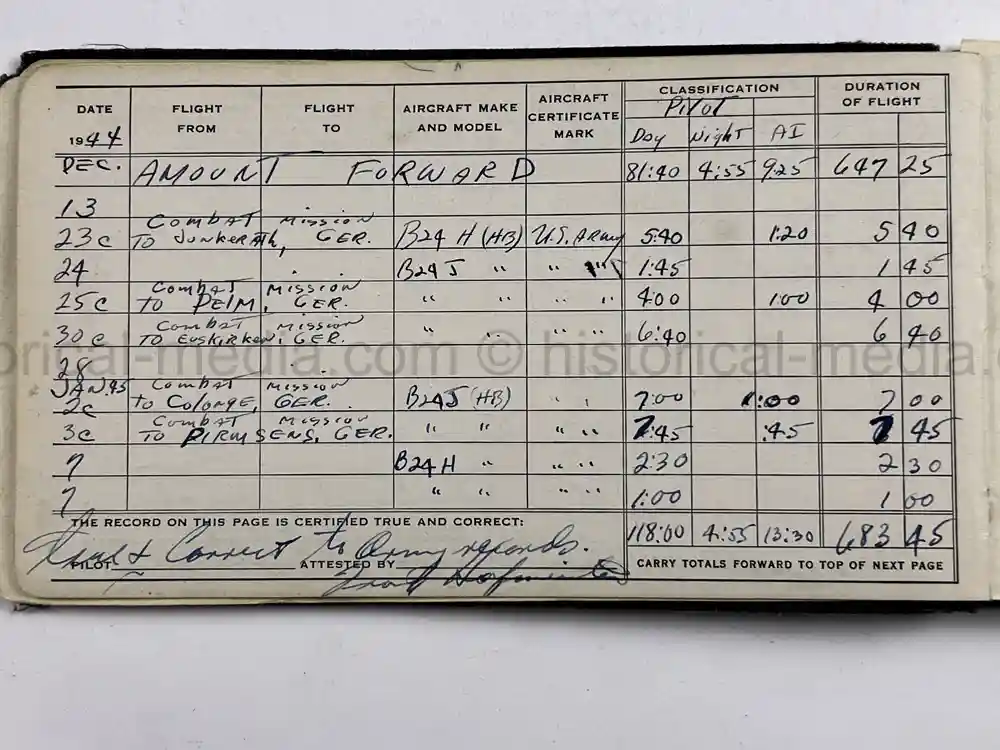 DATE FLIGHT FROM FLIGHT TO AIRCRAFT MAKE AND MODEL AIRCRAFT CERTIFICATE MARK CLASSIFICATION DURATION OF FLIGHT
1944 PILOT Day Night AI
DEC. AMOUNT FORWARD 81:40 4:55 9:25 647 25
13
Combat Mission
23c TO JUNKERATH, GER. B24 H (HB) U.S. Army 5:40 1:20 5 40
24 B24 J " " " 1:45 1 45
Combat Mission
25c to PELM, GER. " " " 4:00 1:00 4 00
Combat Mission
30c TO EUSKIRKEN, GER. " " " " 6:40 6 40
28
JAN.45 Combat Mission
2c to Cologne, GER. B24J (HB) " " 7:00 1:00 7 00
Combat Mission
3c TO PIRMSENS, GER. " " " " 7:45 :45 7 45
7 B24 H " " " 2:30 2 30
7 " " " " 1:00 1 00
THE RECORD ON THIS PAGE IS CERTIFIED TRUE AND CORRECT: 118:00 4:55 13:30 683 45
True & Correct to Army records.
PILOT ATTESTED BY CARRY TOTALS FORWARD TO TOP OF NEXT PAGE
orical-media.com © historical-media.c